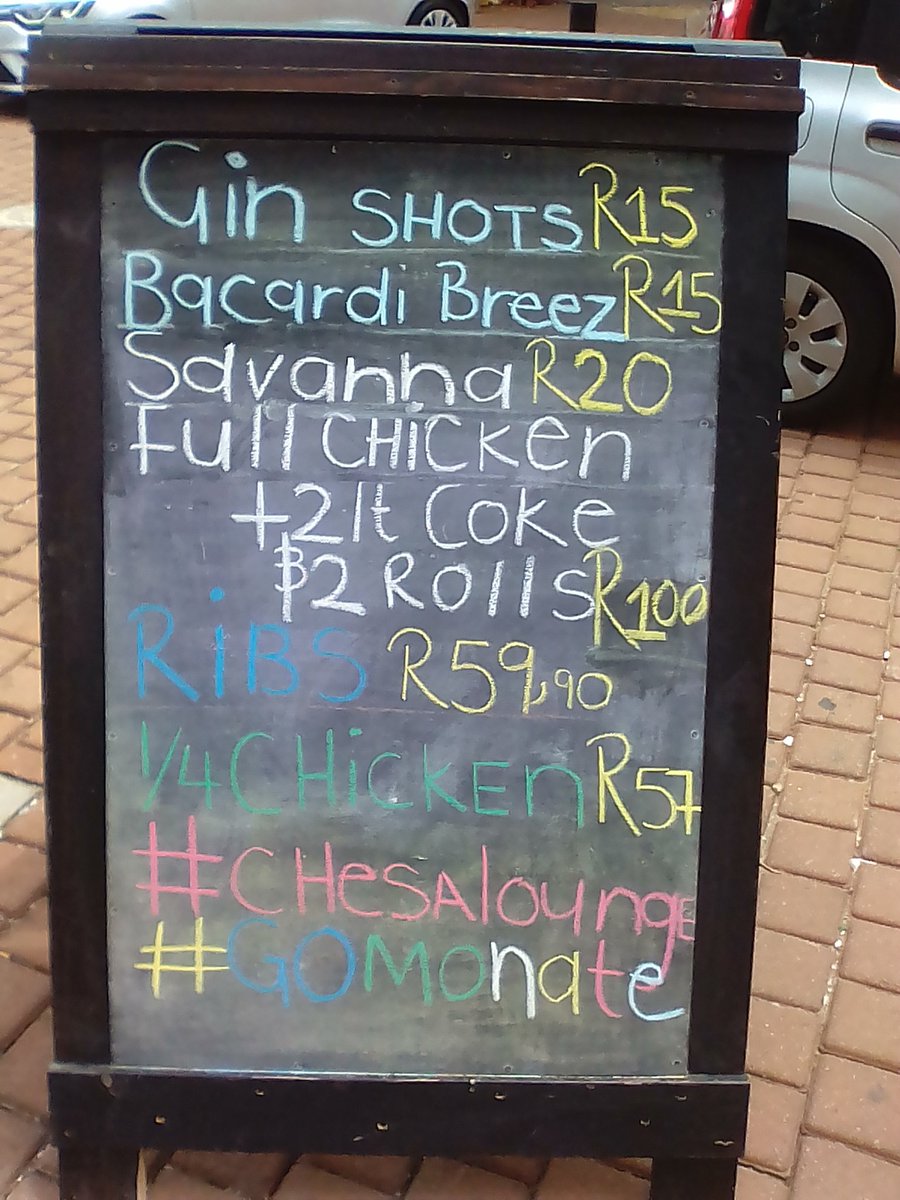 Gin SHOTS R15
Bacardi Breez R15
Savanna R20
Full CHicKen
+2lt Coke
&2 Rolls R100
RiBS R59,90
1/4 CHicKEn R57
#CHeSAloungE
#GOMOnate